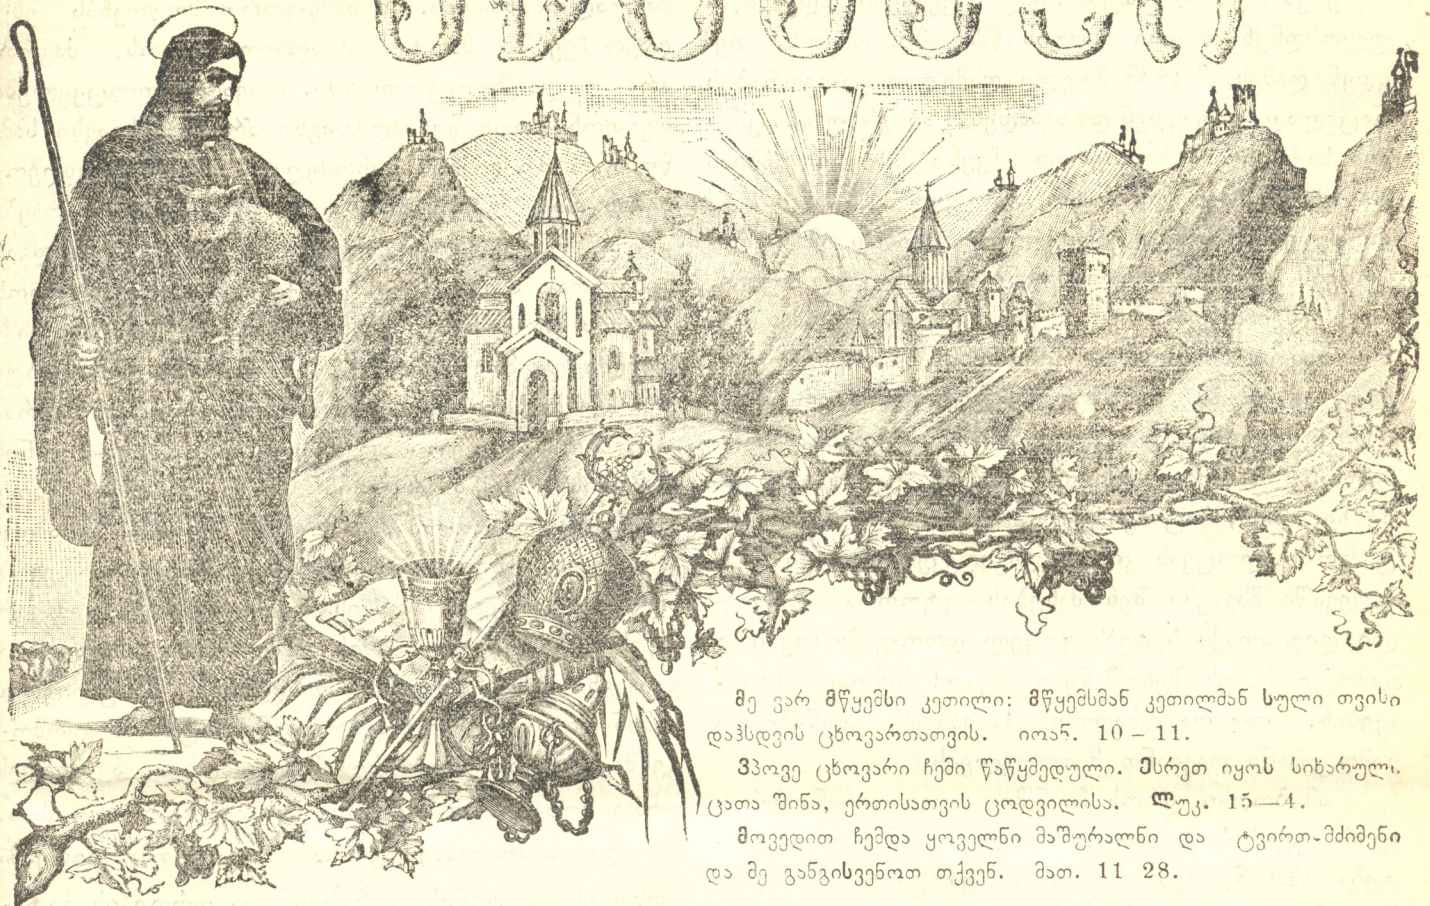 მე ვარ მწყემსი კეთილი: მწყემსმან კეთილმან სული თვისი
დაჰსდვის ცხოვართათვის. იოან. 10 – 11.
ვპოვე ცხოვარი ჩემი წაწყმედული. ესრეთ იყოს სიხარული
ცათა შინა, ერთისათვის ცოდვილისა. ლუკ. 15—4.
მოვედით ჩემდა ყოველნი მაშურალნი და ტვირთ-მძიმენი
და მე განგისვენოთ თქვენ. მათ. 11 28.